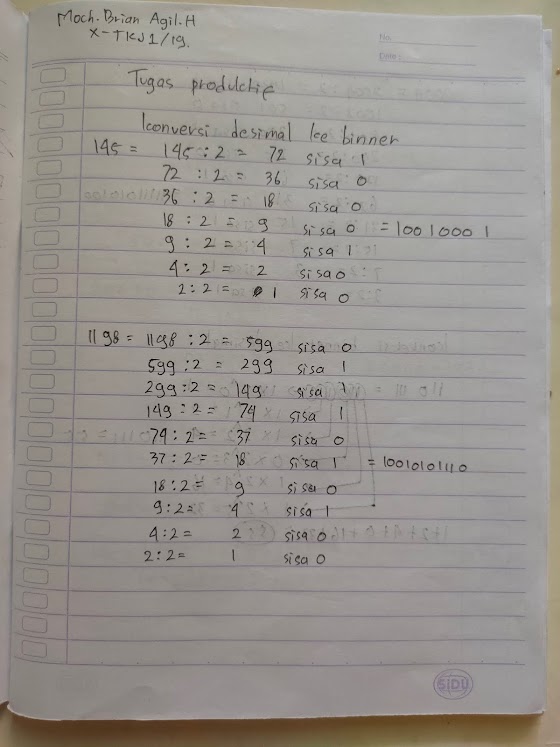 Moch. Brian Agil. H
X-TKJ 1/19.
No.
Date:
Tugas productif
konversi desimal ke binner
145 = 145 : 2 = 72 sisa 1
72 : 2 = 36 sisa 0
36 : 2 = 18 sisa 0
18 : 2 = 9 sisa 0 = 1001000 1
9 : 2 = 4 sisa 1
4 : 2 = 2 sisa 0
2 : 2 = 1 sisa 0
1198 = 1198 : 2 = 599 sisa 0
599 : 2 = 299 sisa 1
299 : 2 = 149 sisa 1
149 : 2 = 74 sisa 1
74 : 2 = 37 sisa 0
37 : 2 = 18 sisa 1 = 10010101110
18 : 2 = 9 sisa 0
9 : 2 = 4 sisa 1
4 : 2 = 2 sisa 0
2 : 2 = 1 sisa 0
SIDU